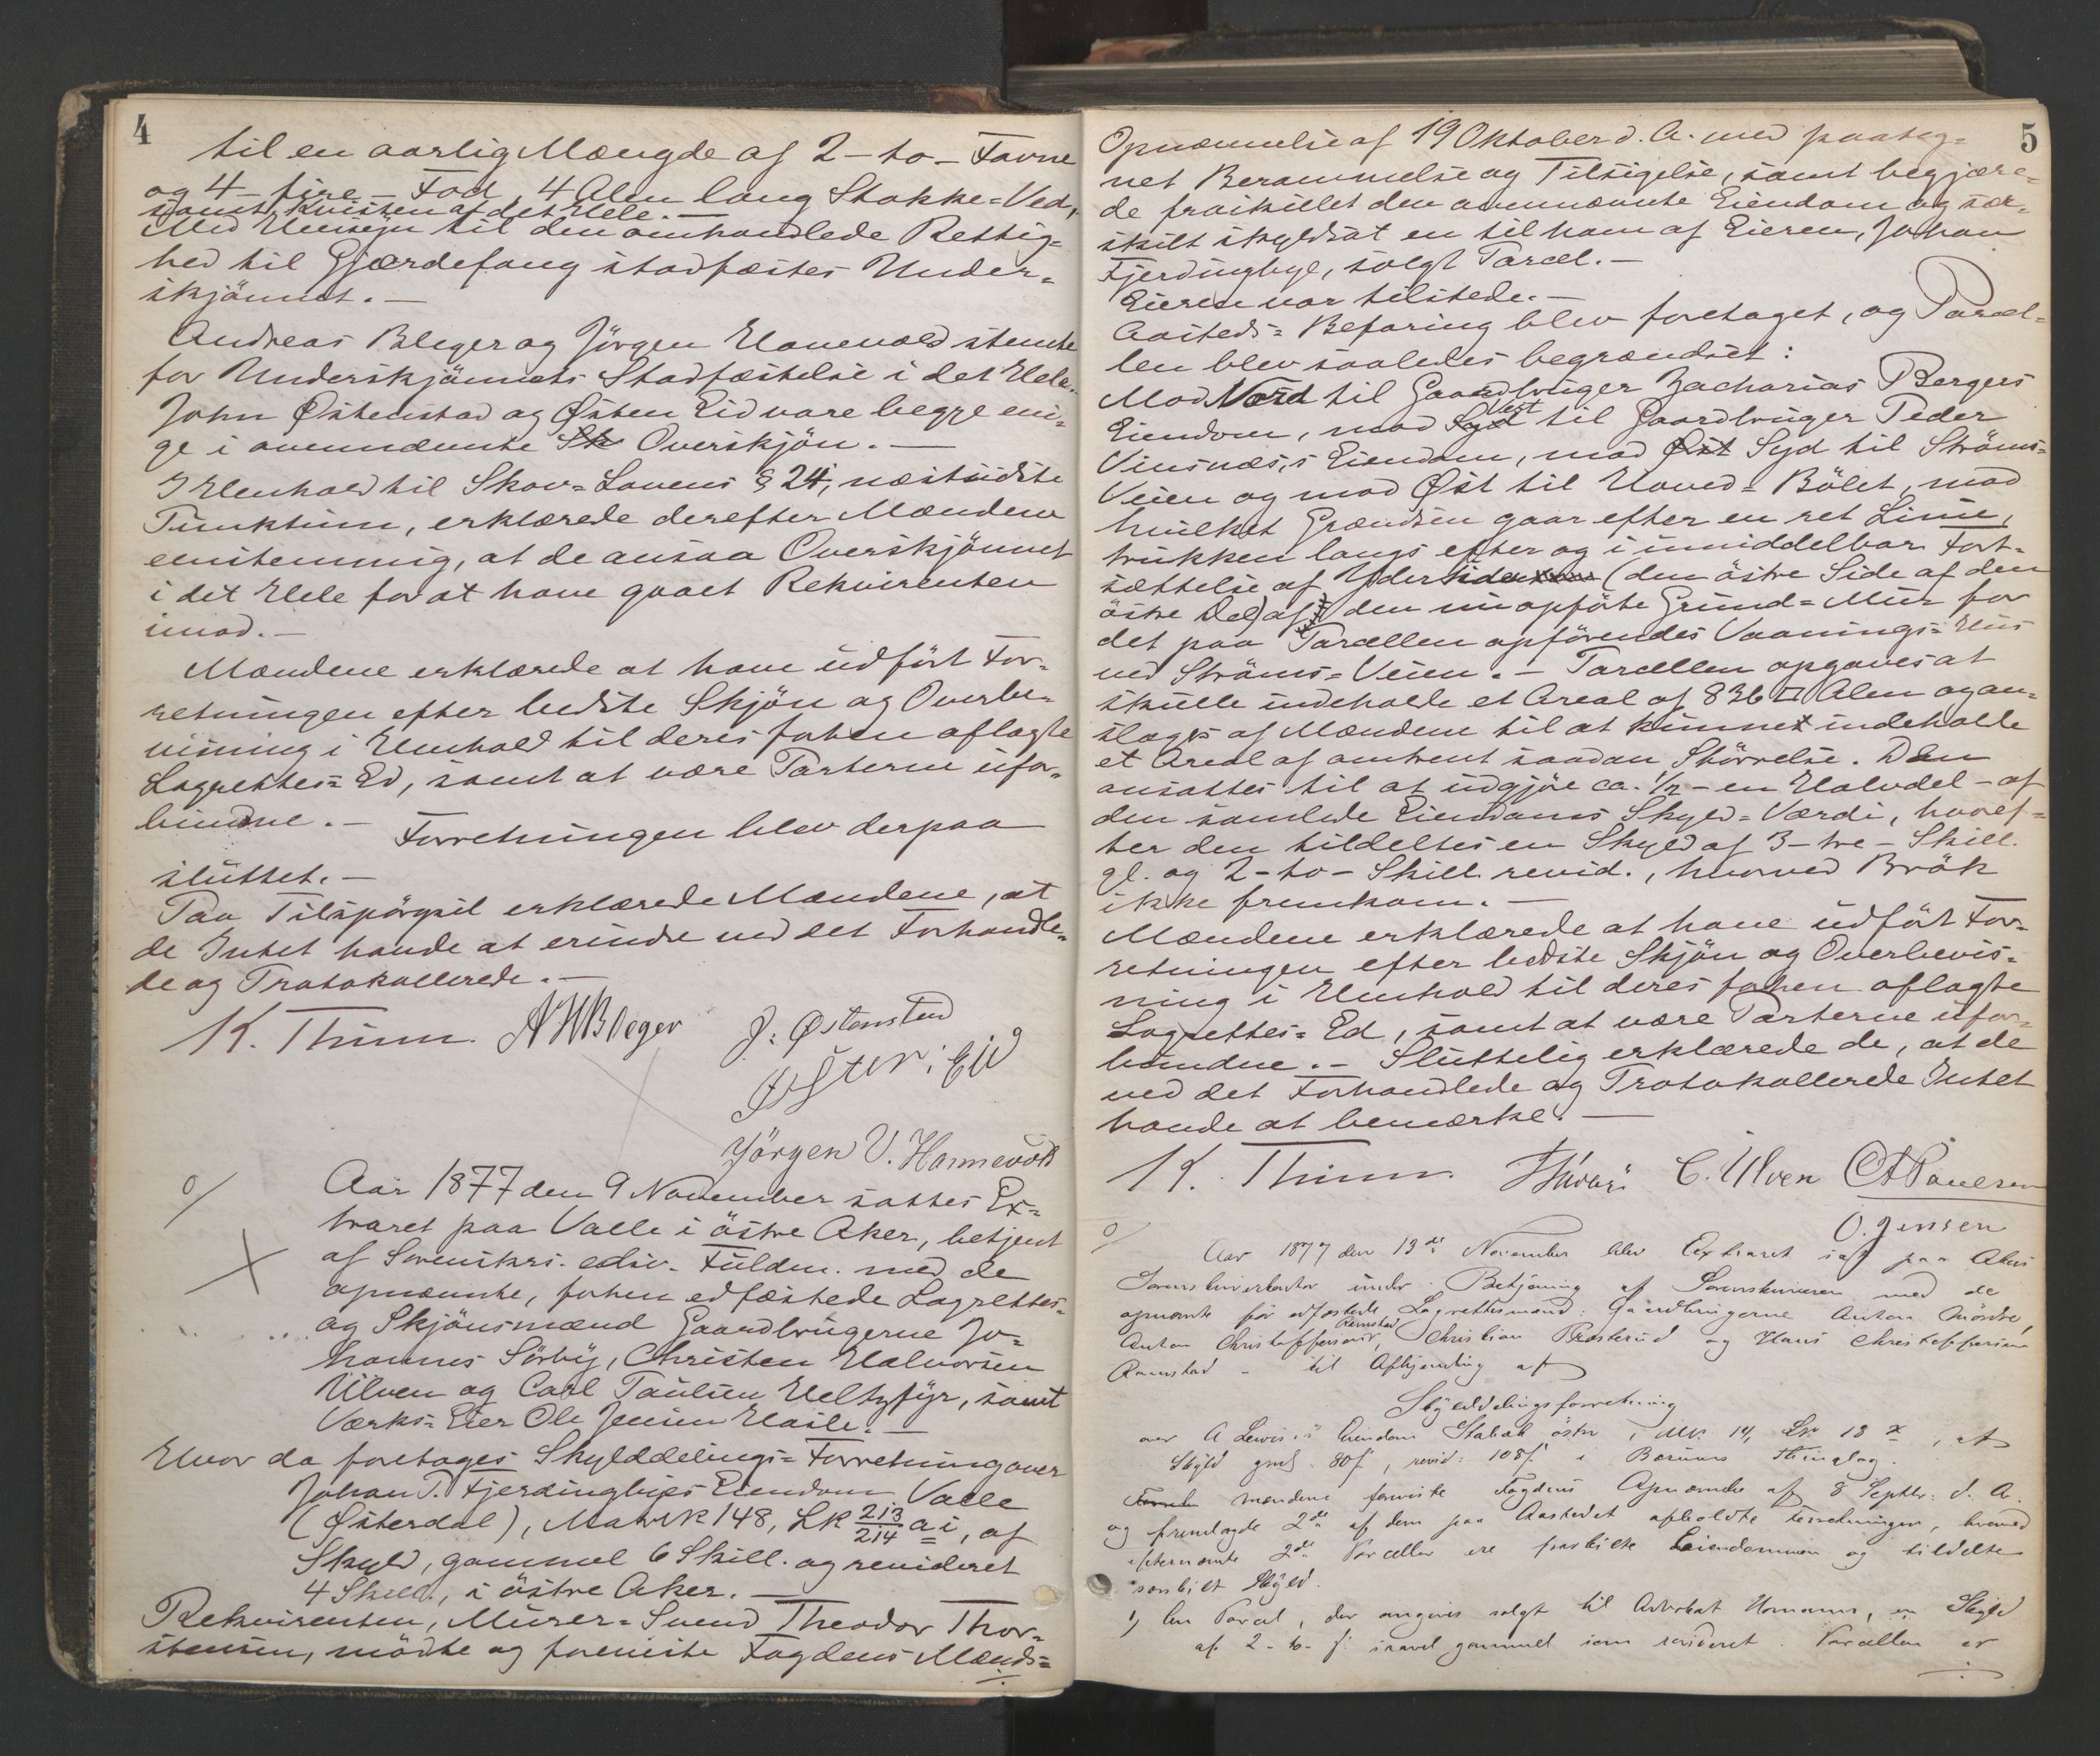 4
til en aarlig Mængde af 2 - to - Favne
og 4 - fire - Fod, 4 Alen lang Stokke=Ved,
samt Kvisten af det Hele. —
Med Hensyn til den omhandlede Rettig=
hed til Gjærdefang stadfæstes Under=
skjønnet. —
Andreas Bleger og Jörgen Hannevold stemte
for Underskjönnets Stadfæstelse i det Hele.
John Østenstad og Østen Eid vare begge eni=
ge i ovennævnte Sk Overskjön. —
I Henhold til Skov=Lovens § 24, næstsidste
Punktum, erklærede derefter Mændene
enstemmig, at de ansaa Overskjönnet
i det Hele for at have gaaet Rekvirenten
imod. —
Mændene erklærede at have udfört For=
retningen efter bedste Skjön og Overbe=
visning i Henhold til deres forhen aflagte
Lagrettes=Ed, samt at være Parterne ufor=
bundne. — Forretningen blev derpaa
sluttet. —
Paa Tilspörgsel erklærede Mændene, at
de Intet havde at erindre ved det Forhandle=
de og Protokollerede. —
K. Thinn. A H Bleger J. Østenstad
Østen Eid
Jörgen V. Hannevold
Aar 1877 den 9 November sattes Ex=
traret paa Valle i östre Aker, betjent
af Sorenskri. edsv. Fuldm. med de
opnævnte, forhen edfæstede Lagrettes=
og Skjönsmænd Gaardbrugerne Jo=
hannes Sörby, Christen Halvorsen
Ulven og Carl Paulsen Helsfyr, samt
Værks=Eier Ole Jensen Hasle. —
Hvor da foretages Skylddelings=Forretning over
Johan P. Fjerdingbyes Eiendom Valle
(Østerdal), Matrk 148, Lk 213/214 a i, af
Skyld, gammel 6 Skill. og revideret
4 Skill., i östre Aker. —
Rekvirenten, Murer=Svend Theodor Thor=
stensen, mödte og foreviste Fogdens Mænds=
5
Opnævnelse af 19 Oktober d. A. med paateg=
net Berammelse og Tilsigelse, samt begjære=
de fraskillet den ovennævnte Eiendom og sær=
skilt skyldsat en til ham af Eieren, Johan
Fjerdingbye, solgt Parcel. —
Eieren var tilstede. —
Aasteds=Befaring blev foretaget, og Parcel=
len blev saaledes begrændset:
Mod Nord til Gaardbruger Zacharias Bergers
Eiendom, mod Syd Vest til Gaardbruger Peder
Vinsnæs,s Eiendom, mod Øst Syd til Ströms=
Veien og mod Øst til Hoved=Bölet, mod
hvilket Grændsen gaar efter en ret Linie,
trukken langs efter og i umiddelbar Fort=
sættelse af Ydersiden (den östre Side af den
östre Del) af den nu opförte Grund=Mur for
det paa Parcellen opförendes Vaanings=Hus
ved Ströms=Veien. — Parcellen opgaves at
skulle indeholde et Areal af 836 □ Alen og an=
sloges af Mændene til at kunne indeholde
et Areal af omtrent saadan Störrelse. Den
ansattes til at udgjöre ca. 1/2 - en Halvdel - af
den samlede Eiendoms Skyld=Værdi, hvoref=
ter den tildeltes en Skyld af 3 - tre - Skill.
gl. og 2 - to - Skill. revid., hvorved Brök
ikke fremkom. —
Mændene erklærede at have udfört For=
retningen efter bedste Skjön og Overbevis=
ning i Henhold til deres forhen aflagte
Lagrettes=Ed, samt at være Parterne ufor=
bundne. — Sluttelig erklærede de, at de
ved det Forhandlede og Protokollerede Intet
havde at bemærke. —
K. Thinn. C. Ulven C Paulsen
O. Jensen
Aar 1877 den 13de November blev Extraret sat paa Akers
Sorenskriverkontor under Betjening af Sorenskriveren med de
opnævnte för edfæstede Lagrettesmænd: Gaardbrugerne Anton
Anton Christoffersen Ramstad, Christian Præsterud og Hans Christoffersen
Ramstad - til Afhjemling af
Skylddelingsforretning
over A Lewis's Eiendom Stabæk östre, Mk. 14, Lk 18, af
Skyld gml. 80 f, revid: 108 f i Bærums Thinglag.
Mændene foreviste Fogdens Opnævnelse af 8 Septbr. d. A.
og fremlagde 2de af dem paa Aastedet afholdte Forretninger, hvorved
efternævnte 2de Parceller ere fraskilte Eiendommen og tildelte
særskilt Skyld.
1) En Parcel, der angives solgt til Advokat Homann, en Skyld
af 2 - to - f. saavel gammel som revideret. Parcellen er